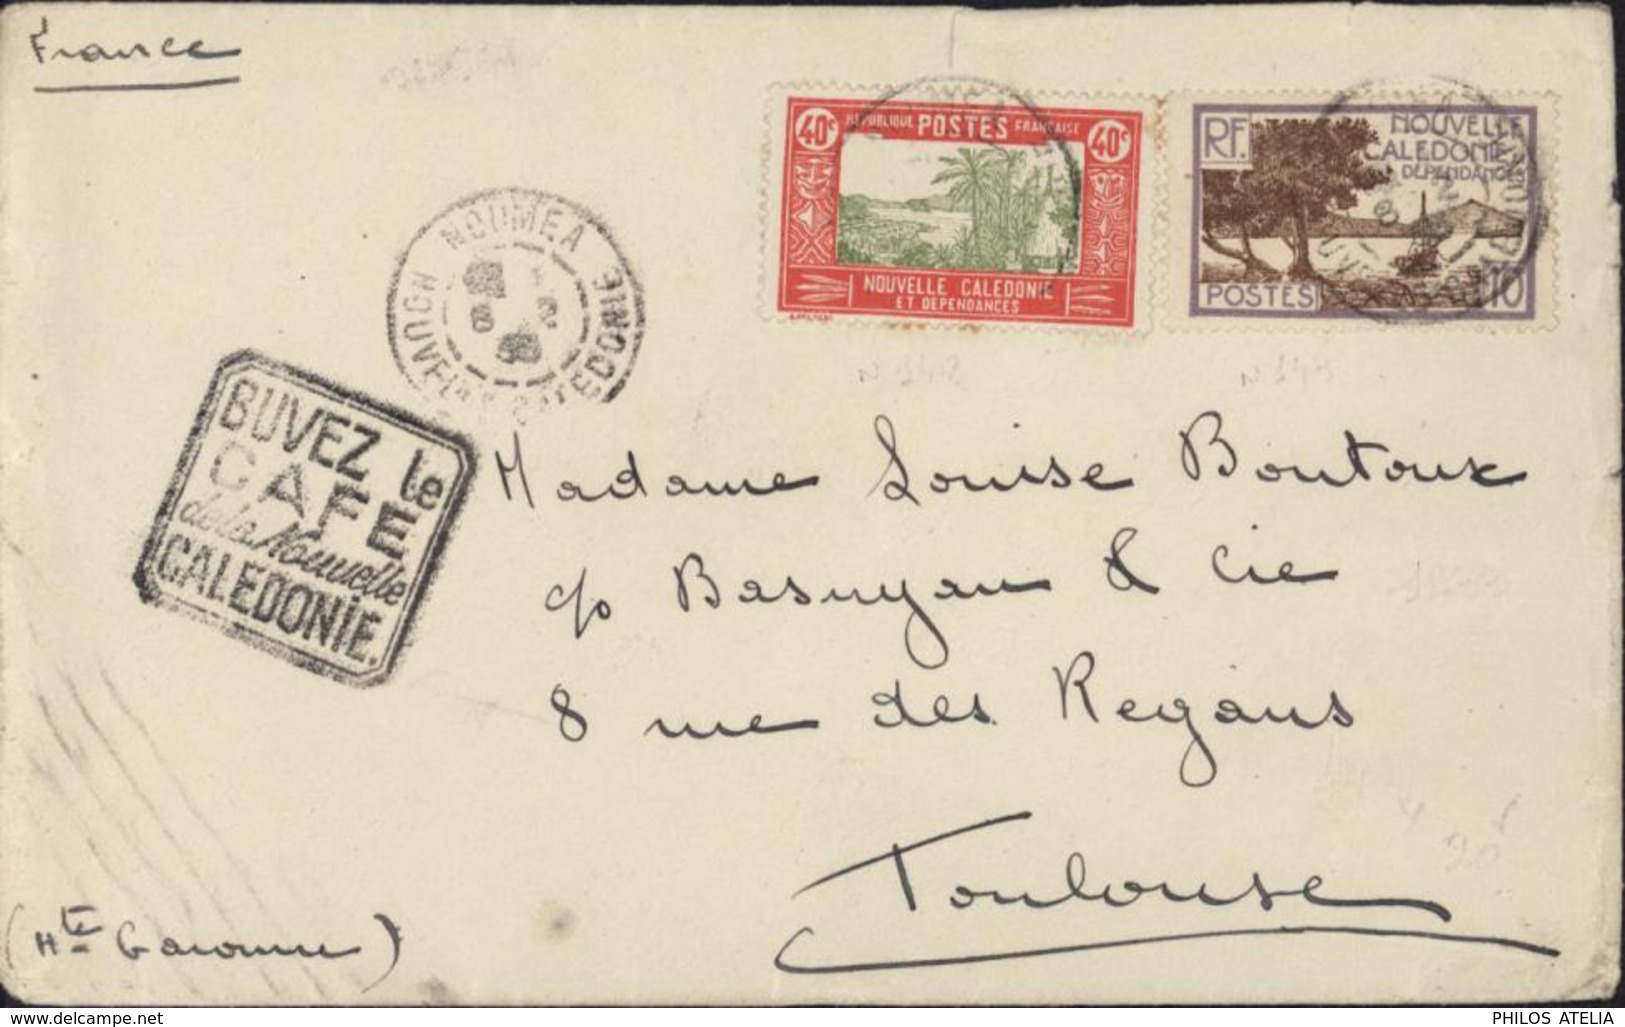 France
40c RÉPUBLIQUE POSTES FRANÇAISE 40c
NOUVELLE CALEDONIE
ET DEPENDANCES
RF.
NOUVELLE
CALEDONIE
DÉPENDANCES
POSTES
10
NOUMEA
NOUVELLE CALEDONIE
BUVEZ le
CAFÉ
de la Nouvelle
CALEDONIE.
Madame Louise Boutoux
c/o Basuyau & Cie
8 rue des Regans
Toulouse
(Hte Garonne)
PHILOS ATELIA
www.delcampe.net